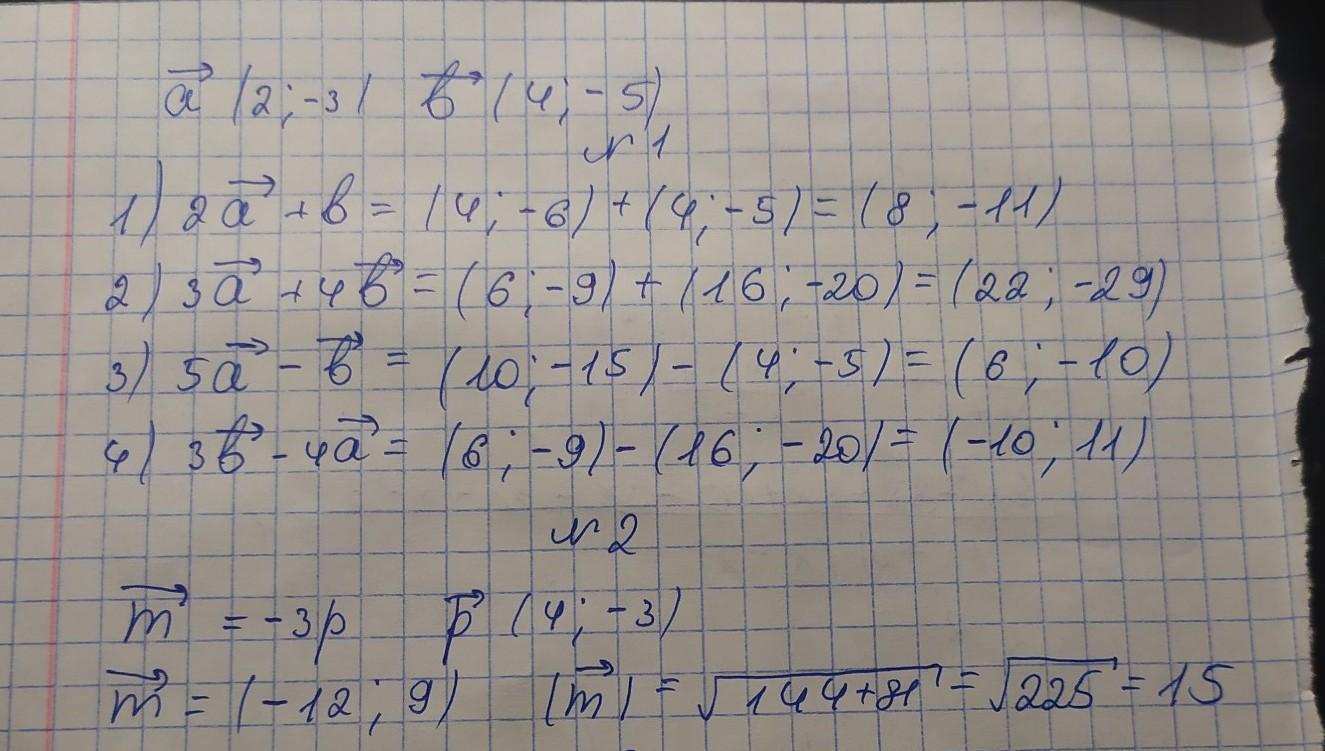 a⃗ (2; -3) b⃗ (4; -5)
№1
1) 2a⃗ + b = (4; -6) + (4; -5) = (8; -11)
2) 3a⃗ + 4b⃗ = (6; -9) + (16; -20) = (22; -29)
3) 5a⃗ - b⃗ = (10; -15) - (4; -5) = (6; -10)
4) 3b⃗ - 4a⃗ = (6; -9) - (16; -20) = (-10; 11)
№2
m⃗ = -3p p⃗ (4; -3)
m⃗ = (-12; 9) |m⃗| = √144+81 = √225 = 15